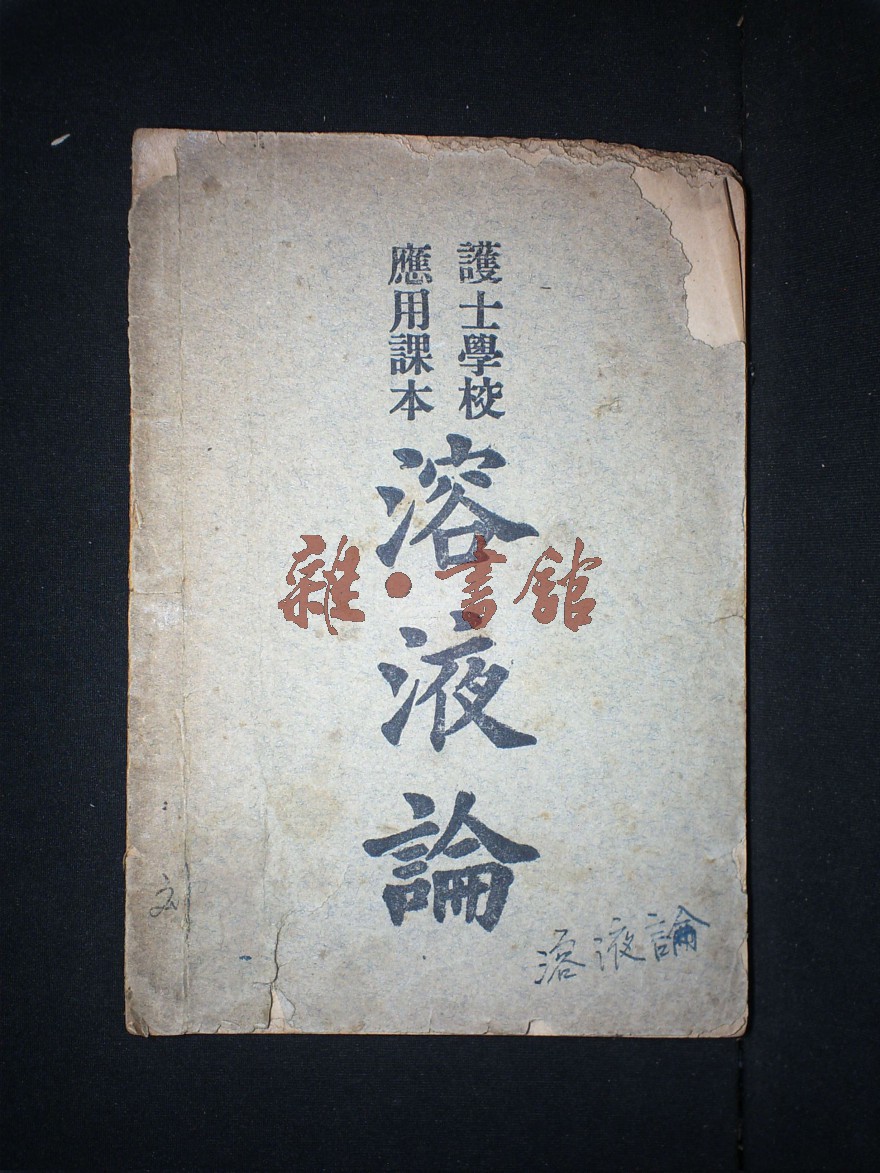 護士學校
應用課本
溶液論
雜·書館
溶液論
刘